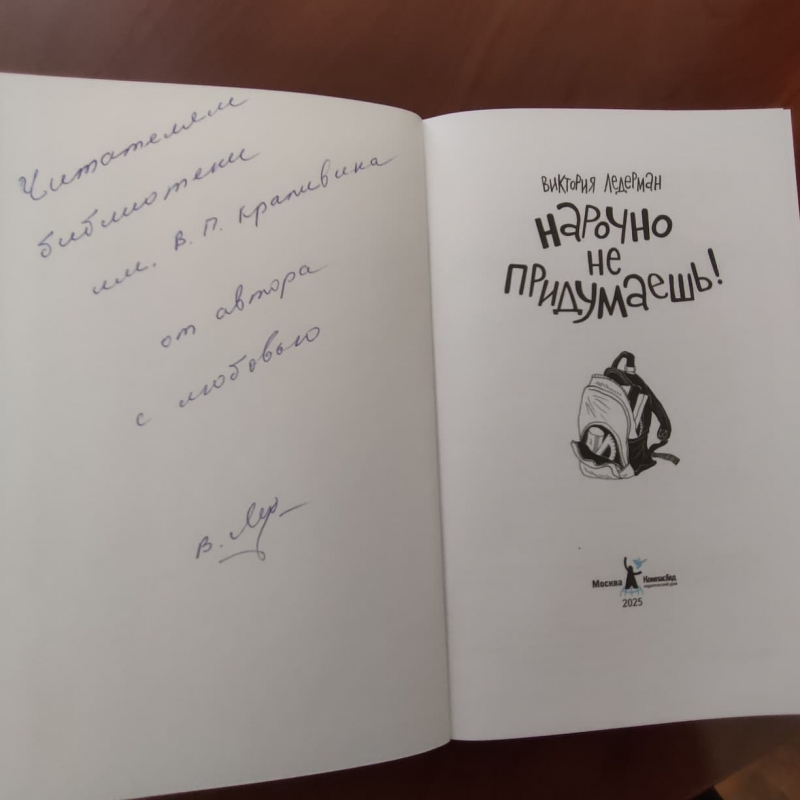 Читателям
библиотеки
им. В. П. Крапивина
от автора
с любовью
В. Лед
ВИКТОРИЯ ЛЕДЕРМАН
НАРОЧНО
НЕ
ПРИДУМАЕШЬ!
Москва
КомпасГид
издательский дом
2025